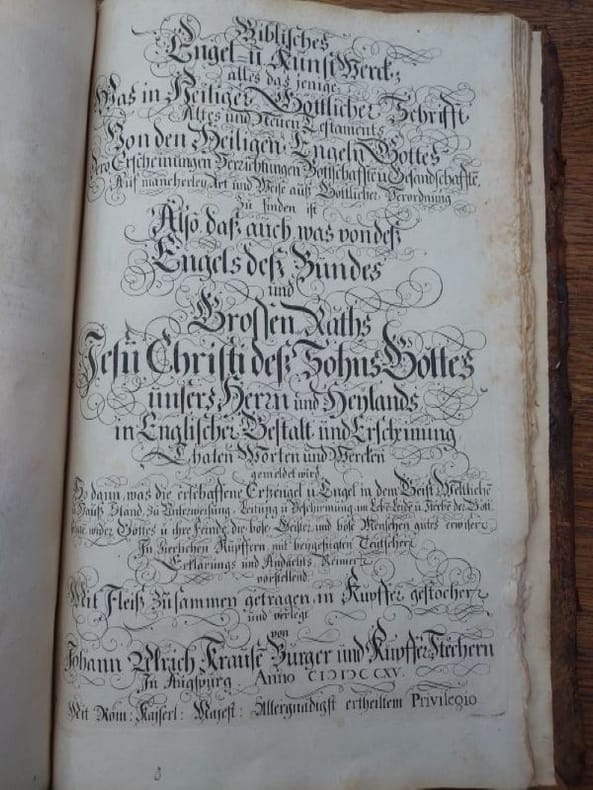 Biblisches
Engel- u. Kunst Werck:
alles das jenige,
Was in Heiliger Göttlicher Schrifft
Altes und Neuen Testaments
Von den Heiligen Engeln Gottes
dero Erscheinungen Verrichtungen Bottschafften Gesandschafften,
Auf mancherley Art und Weise auß Göttlicher Verordnung
Zu finden ist
Also daß auch was von deß
Engels deß Bundes
und
Grossen Raths
Jesu Christi deß Sohns Gottes
unsers Herrn und Heylands
in Englischer Gestalt und Erscheinung
Thaten Worten und Wercken
gemeldet wird
So dann, was die erschaffene Ertzengel u. Engel in dem Geist Weltliche
u. Hauß Stand, Zu Unterweisung, Leitung u. Beschirmung im Leben Leide u. Sterbe der Gott
wider Gottes u. ihre Feinde, die böse Geister und böse Menschen gutes erwisen
In Zierlichen Kupffern mit beygefügten Teutschen
Erklärungs und Andachts Reimen
vorstellend.
Mit Fleiß Zusammen getragen in Kupffer gestochen
und verlegt
von
Johann Ulrich Krausen Burger und Kupffer Stechern
In Augspurg Anno CIƆIƆCCXV.
Mit Röm: Kayserl: Majest: Allergnädigst ertheiltem Privilegio